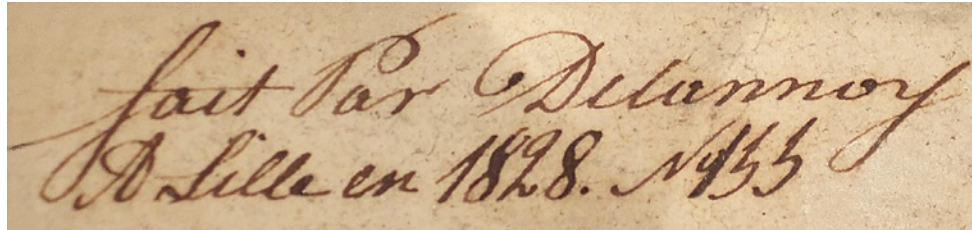 fait Par Delannoy
A Lille en 1828. N° 155